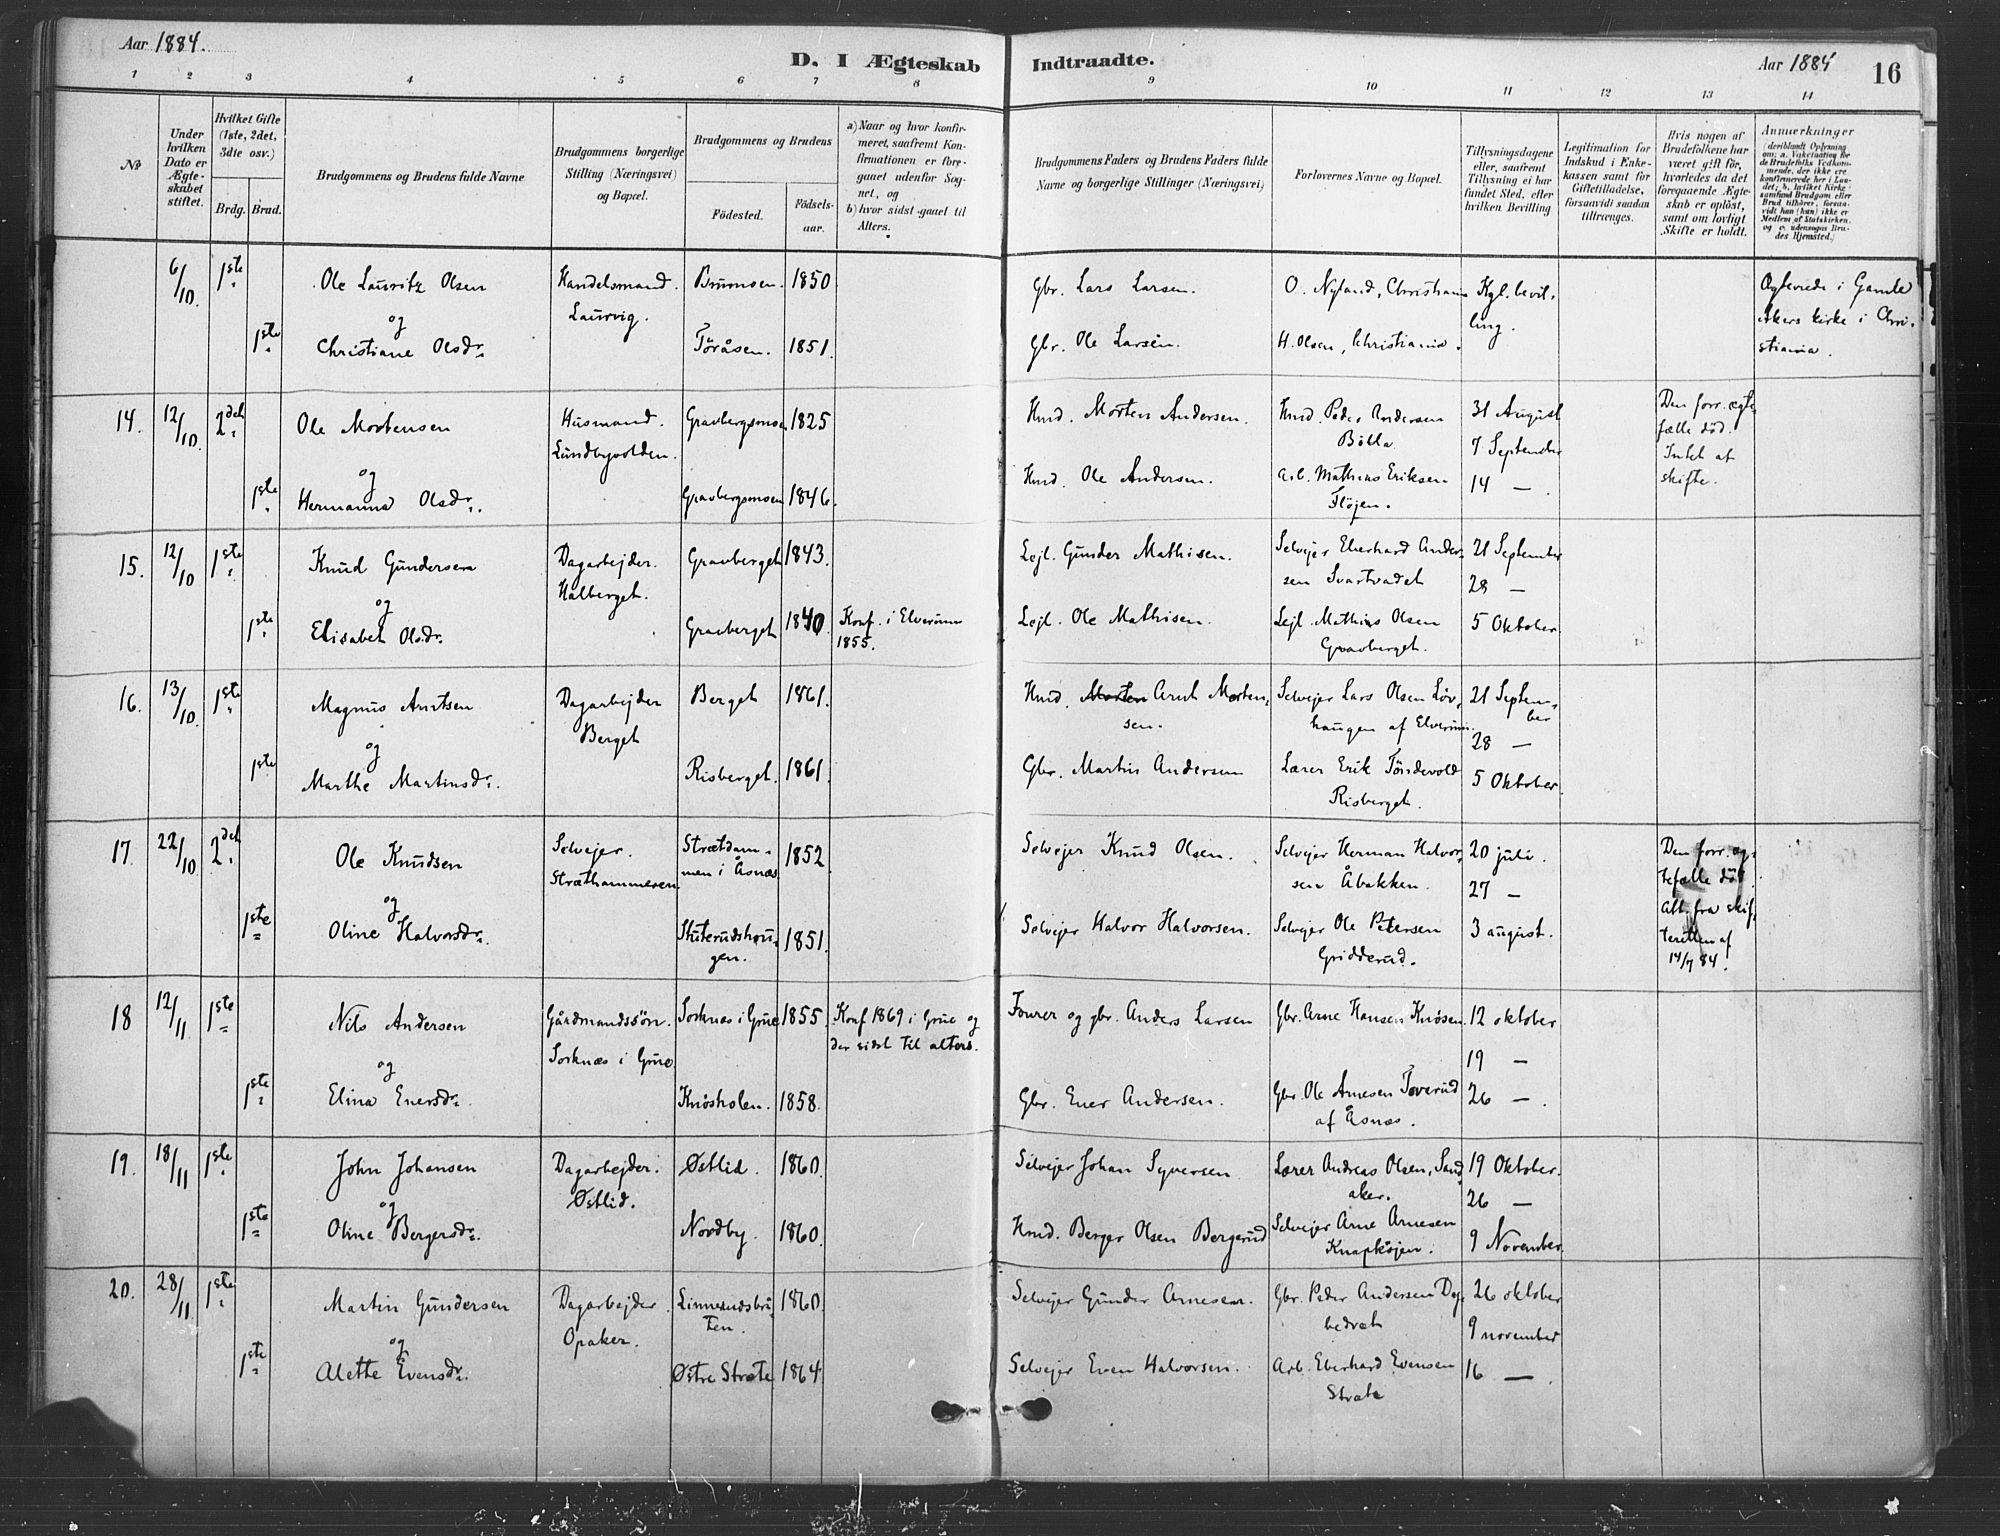 Aar 1884.
D. I Ægteskab Indtraadte.
Aar 1884
16
1 2 3 4 5 6 7 8 9 10 11 12 13 14
No
Under hvilken Dato er Ægteskabet stiftet.
Hvilket Gifte (1ste, 2det, 3die osv.)
Brdg. Brud.
Brudgommens og Brudens fulde Navne
Brudgommens borgerlige Stilling (Næringsvei) og Bopæl.
Brudgommens og Brudens
Fødested.
Fødselsaar.
a) Naar og hvor konfirmeret, saafremt Konfirmationen er foregaaet udenfor Sognet, og
b) hvor sidst gaaet til Alters.
Brudgommens Faders og Brudens Faders fulde Navne og borgerlige Stillinger (Næringsvei)
Forlovernes Navne og Bopæl.
Tillysningsdagene eller, saafremt Tillysning ei har fundet Sted, efter hvilken Bevilling
Legitimation for Indskud i Enkekassen samt for Giftetilladelse, forsaavidt saadan tiltrænges.
Hvis nogen af Brudefolkene har været gift før, hvorledes da det foregaaende Ægteskab er opløst, samt om lovligt Skifte er holdt.
Anmærkninger (deriblandt Oplysning om: a. Vakcination for de Brudefolks Vedkommende, der ikke ere konfirmerede her i Landet; b. hvilket Kirkesamfund Brudgom eller Brud tilhører, forsaavidt han (hun) ikke er Medlem af Statskirken, og c. udensogns Brudes Hjemsted.)
6/10. 1ste 1ste
Ole Lauritz Olsen
og
Christiane Olsdr.
Handelsmand.
Laurvig.
Brumoen. 1850
Töråsen. 1851.
Gbr. Lars Larsen.
Gbr. Ole Larsen.
O. Nyland, Christiania
H. Olsen, Christiania.
Kgl. bevil-
ling.
Ægteviede i Gamle
Akers kirke i Chri-
stiania.
14. 12/10. 2det 1ste
Ole Mortensen
og
Hermanna Olsdr.
Husmand.
Lundbyvolden.
Gravbergsmoen 1825
Gravbergsmoen 1846.
Hmd. Morten Andersen.
Hmd. Ole Andersen.
Hmd. Peder Andersen
Bölla
Arb. Mathias Eriksen
Flöjen.
31 August
7 September
14 —
Den forr. ægte-
fælle död.
Intet at
skifte.
15. 12/10 1ste 1ste
Knud Gundersen
og
Elisabet Olsdr.
Dagarbejder.
Halberget.
Gravberget 1843.
Gravberget 1840.
Konf. i Elverum
1855.
Lejl. Gunder Mathisen.
Lejl. Ole Mathisen.
Selvejer Eberhard Ander-
sen Svartvadet
Lejl. Mathias Olsen
Gravberget.
21 September
28 —
5 Oktober
16. 13/10. 1ste 1ste
Magnus Arntsen
og
Marthe Martinsdr.
Dagarbejder
Berget
Berget 1861.
Risberget. 1861.
Hmd. Morten Arnt Morten-
sen.
Gbr. Martin Andersen
Selvejer Lars Olsen Löv-
haugen af Elverum.
Lærer Erik Töndevold
Risberget.
21 Septem-
ber
28 —
5 Oktober.
17. 22/10 2det 1ste
Ole Knudsen
og
Oline Halvorsdr.
Selvejer.
Stræthammeren.
Strætdam-
men i Åsnæs 1852
Skuterudshau-
gen. 1851.
Selvejer Knud Olsen.
Selvejer Halvor Halvorsen.
Selvejer Herman Halvor-
sen Åbakken.
Selvejer Ole Petersen
Gridderud.
20 juli.
27 —
3 august.
Den forr. æg-
tefælle död.
Att. fra skif-
teretten af
14/7 84.
18 12/11 1ste 1ste
Nils Andersen
og
Elina Enersdr.
Gårdmandssön.
Sorknæs i Grue
Sorknæs i Grue 1855.
Knösholen. 1858.
Konf 1869 i Grue og
der sidst til alters.
Fourer og gbr. Anders Larsen
Gbr. Ener Andersen.
Gbr. Arne Hansen Knösen.
Gbr. Ole Arnesen Toverud
af Åsnæs.
12 oktober
19 —
26 —.
19. 18/11 1ste 1ste
John Johansen
og
Oline Bergersdr.
Dagarbejder.
Østlid.
Østlid. 1860.
Nordby. 1860.
Selvejer Johan Syversen.
Hmd. Berger Olsen Bergerud
Lærer Andreas Olsen, Sand-
aker.
Selvejer Arne Arnesen
Knapköjen.
19 Oktober.
26 —
9 November.
20. 28/11 1ste 1ste
Martin Gundersen
og
Alette Evensdr.
Dagarbejder.
Opaker.
Linnerudsbrå-
ten. 1860.
Østre Stræte 1864.
Selvejer Gunder Arnesen.
Selvejer Even Halvorsen.
Gbr. Peder Andersen
Arb. Eberhard Evensen
Stræte
26 oktober
9 november
16 —